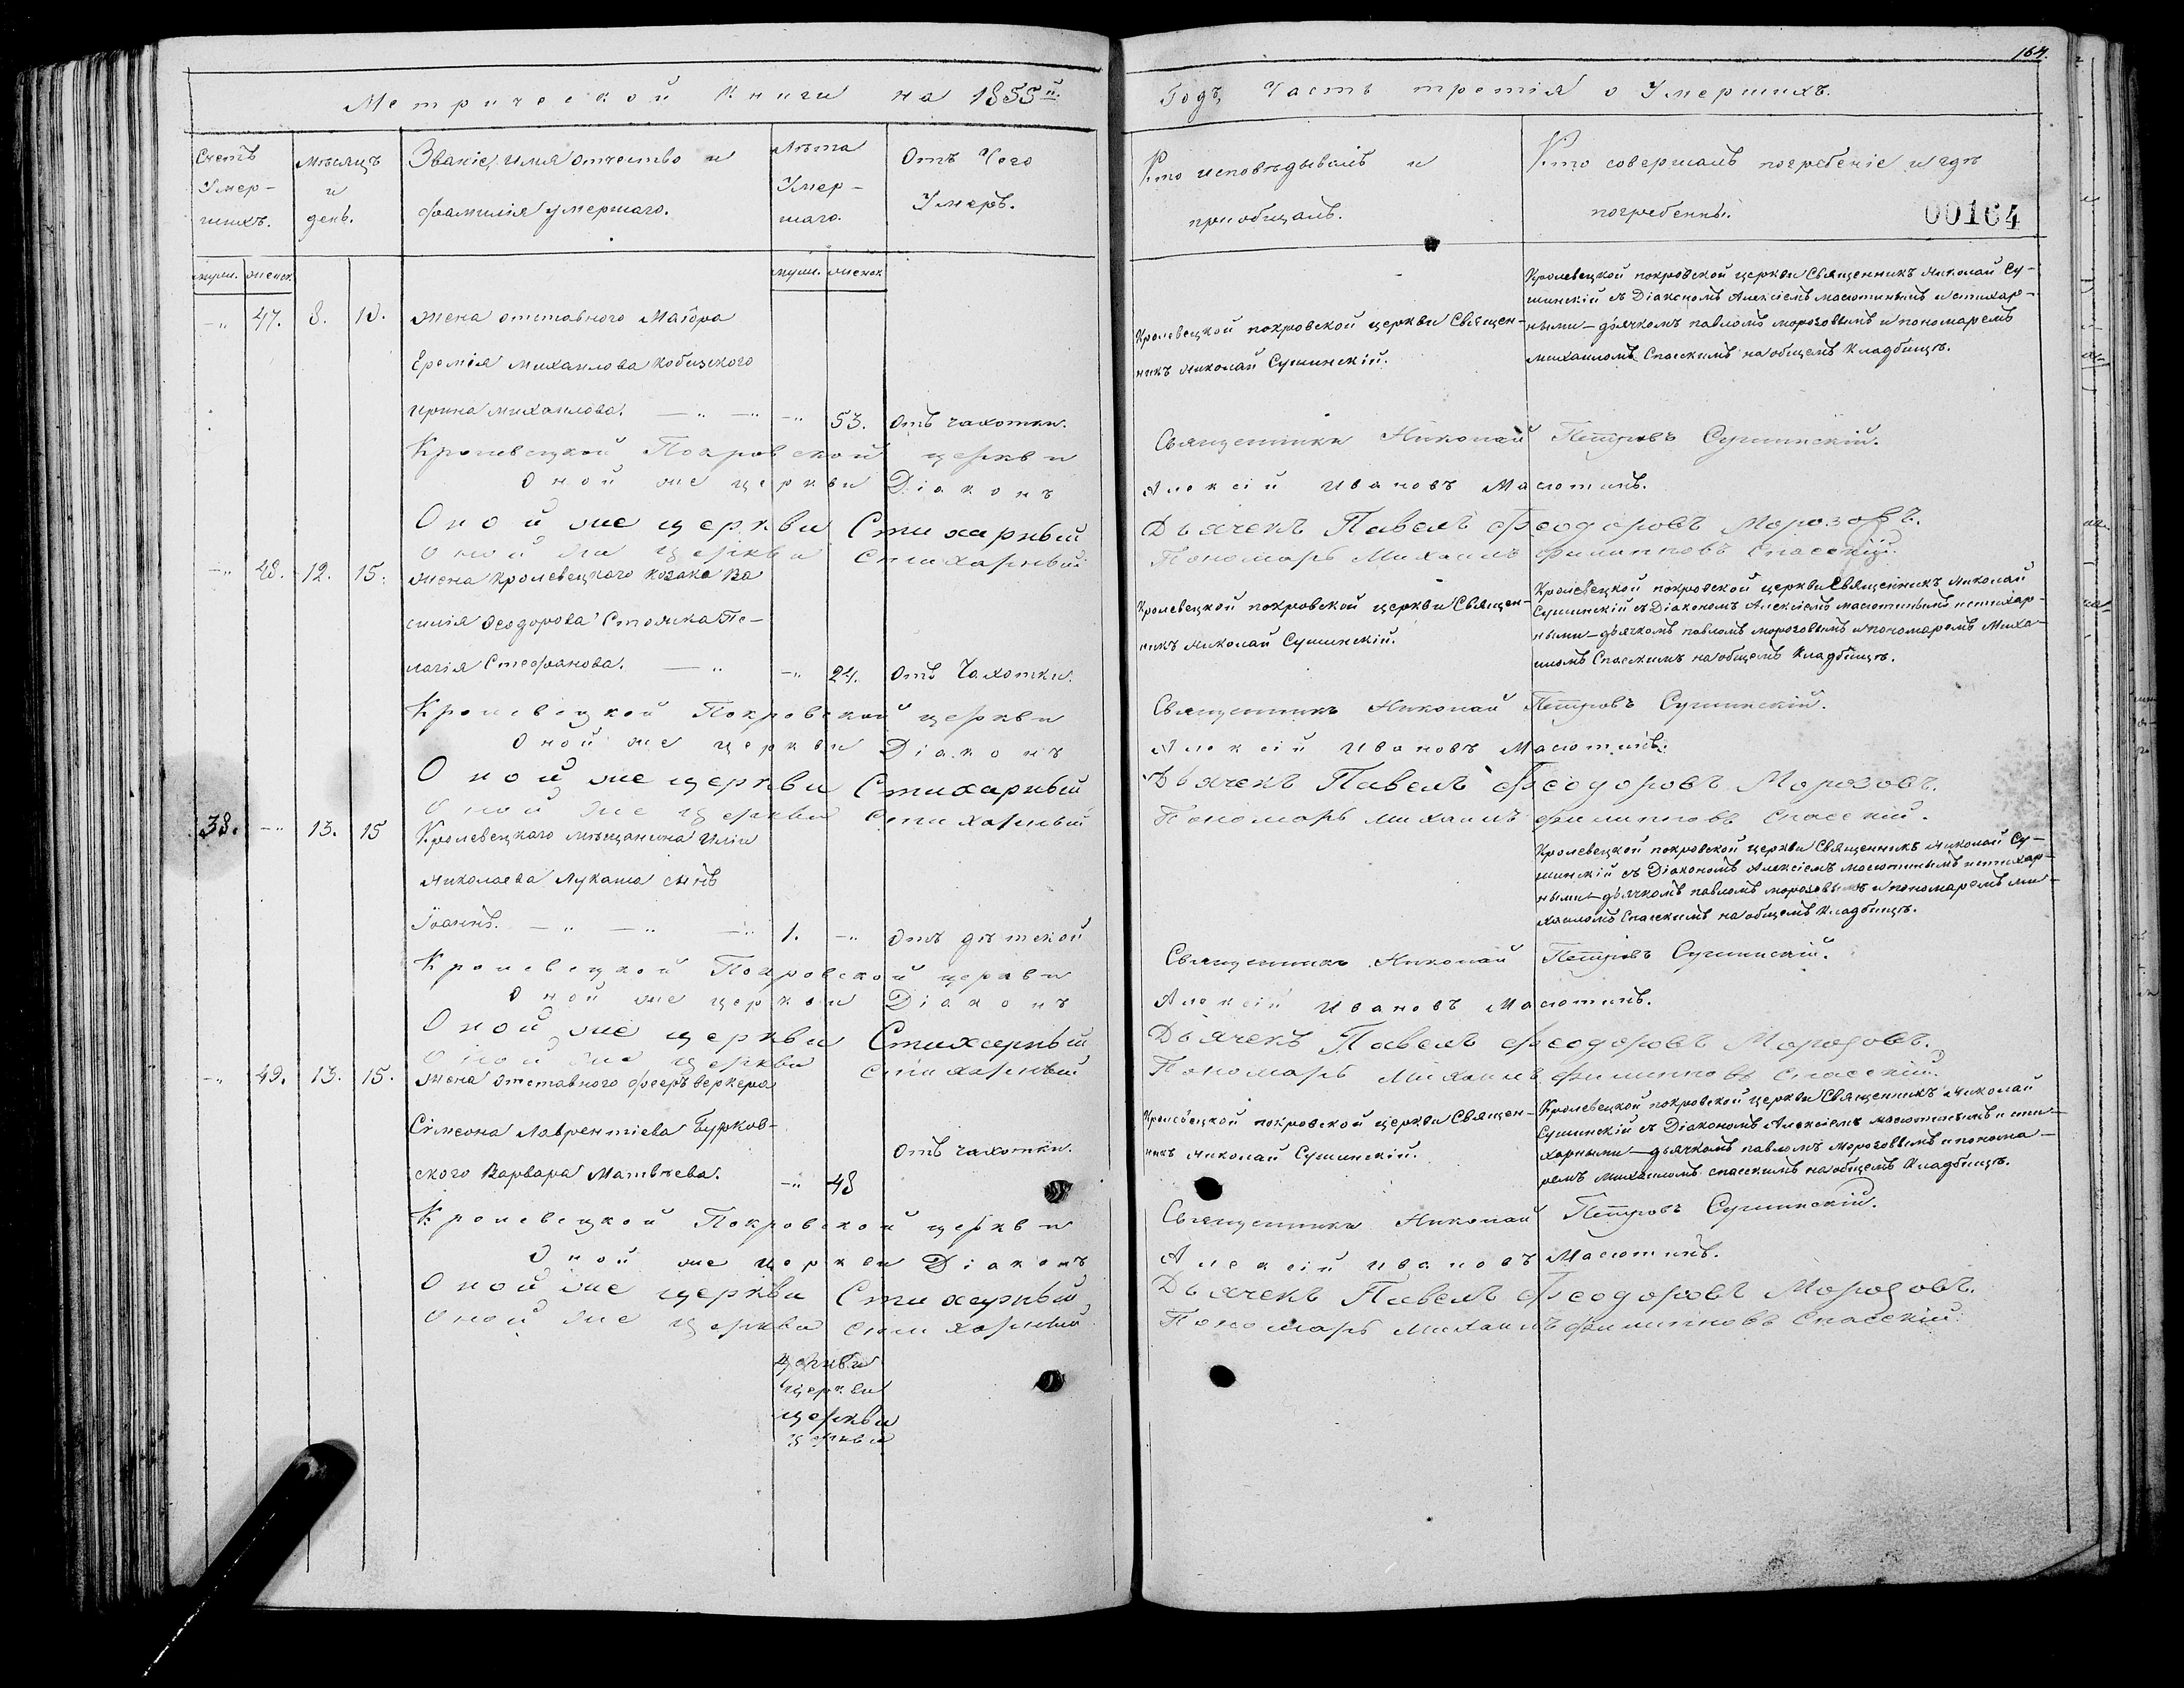 164.
Метрической Книги на 1855й.
Годъ Часть третія о Умершихъ.
Счетъ Умер-
шихъ.
Мѣсяцъ
и
день.
Званіе, имя отчество и
фамилія умершаго.
Лѣта
Умер-
шаго.
Отъ Чего
Умеръ.
Кто исповѣдывалъ и
приобщалъ.
Кто совершалъ погребеніе и гдѣ
погребены.
00164
муж. женск.
муж. женск.
-„ 47. 8. 10. жена отставного Маіора
Еремія Михаилова Кобизского
Ирина Михаилова. -„ -„ -„ 53. Отъ чахотки.
Кролевецкой покровской церкви Священ-
никъ Николай Сушинскій.
Кролевецкой покровской церкви Священникъ Николай Су-
шинскій съ Діакономъ Алексіемъ Масютинымъ и стихар-
ными – дьячкомъ павломъ морозовымъ и пономаремъ
михаиломъ Спасскимъ на общемъ Кладбищѣ.
Кролевецкой Покровской церкви Священникъ Николай Петровъ Сушинскій.
Оной же церкви Діаконъ Алексій Ивановъ Масютинъ.
Оной же церкви Стихарный Дьячекъ Павелъ Феодоровъ Морозовъ.
Оной же церкви стихарный Пономарь Михаилъ Филипповъ Спасскій.
-„ 48. 12. 15. жена Кролевецкого козака Ва
силія Феодорова Столика Пе-
лагія Стефанова. -„ -„ 24. Отъ Чахотки.
Кролевецкой покровской церкви Священ-
никъ Николай Сушинскій.
Кролевецкой покровской церкви Священникъ Николай
Сушинскій съ Діакономъ Алексіемъ масютинымъ и стихар-
ными – дьячкомъ павломъ морозовымъ и пономаремъ Миха-
иломъ Спасскимъ на общемъ Кладбищѣ.
Кролевецкой Покровской церкви Священникъ Николай Петровъ Сушинскій.
Оной же церкви Діаконъ Алексій Ивановъ Масютинъ.
Оной же церкви Стихарный Дьячекъ Павелъ Феодоровъ Морозовъ.
Оной же церкви стихарный Пономарь Михаилъ Филипповъ Спасскій.
38. -„ 13. 15 Кролевецкаго мѣщанина Иліи
Николаева Лукаша сынъ
Іоаннъ. -„ -„ -„ 1. -„ Отъ дѣтской
Кролевецкой покровской церкви Священникъ Николай Су-
шинскій съ Діакономъ Алексіемъ Масютинымъ и стихар-
ными – дьячкомъ павломъ морозовымъ и пономаремъ ми-
хаиломъ Спасскимъ на общемъ Кладбищѣ.
Кролевецкой Покровской церкви Священникъ Николай Петровъ Сушинскій.
Оной же церкви Діаконъ Алексій Ивановъ Масютинъ.
Оной же церкви Стихарный Дьячекъ Павелъ Феодоровъ Морозовъ.
Оной же церкви стихарный Пономарь Михаилъ Филипповъ Спасскій.
-„ 49. 13. 15. жена отставного феерверкера
Сімеона Лаврентіева Бужков-
ского Варвара Матвѣева. -„ 48 Отъ чахотки.
Кролевецкой покровской церкви Священ-
никъ Николай Сушинскій.
Кролевецкой покровской церкви Священникъ Николай
Сушинскій съ Діакономъ Алексіемъ масютинымъ и сти-
харными – дьячкомъ павломъ морозовымъ и понома-
ремъ Михаиломъ спасскимъ на общемъ Кладбищѣ.
Кролевецкой Покровской церкви Священникъ Николай Петровъ Сушинскій.
Оной же церкви Діаконъ Алексій Ивановъ Масютинъ.
Оной же церкви Стихарный Дьячекъ Павелъ Феодоровъ Морозовъ.
Оной же церкви стихарный Пономарь Михаилъ Филипповъ Спасскій.
церкви
церкви
церкви
церкви